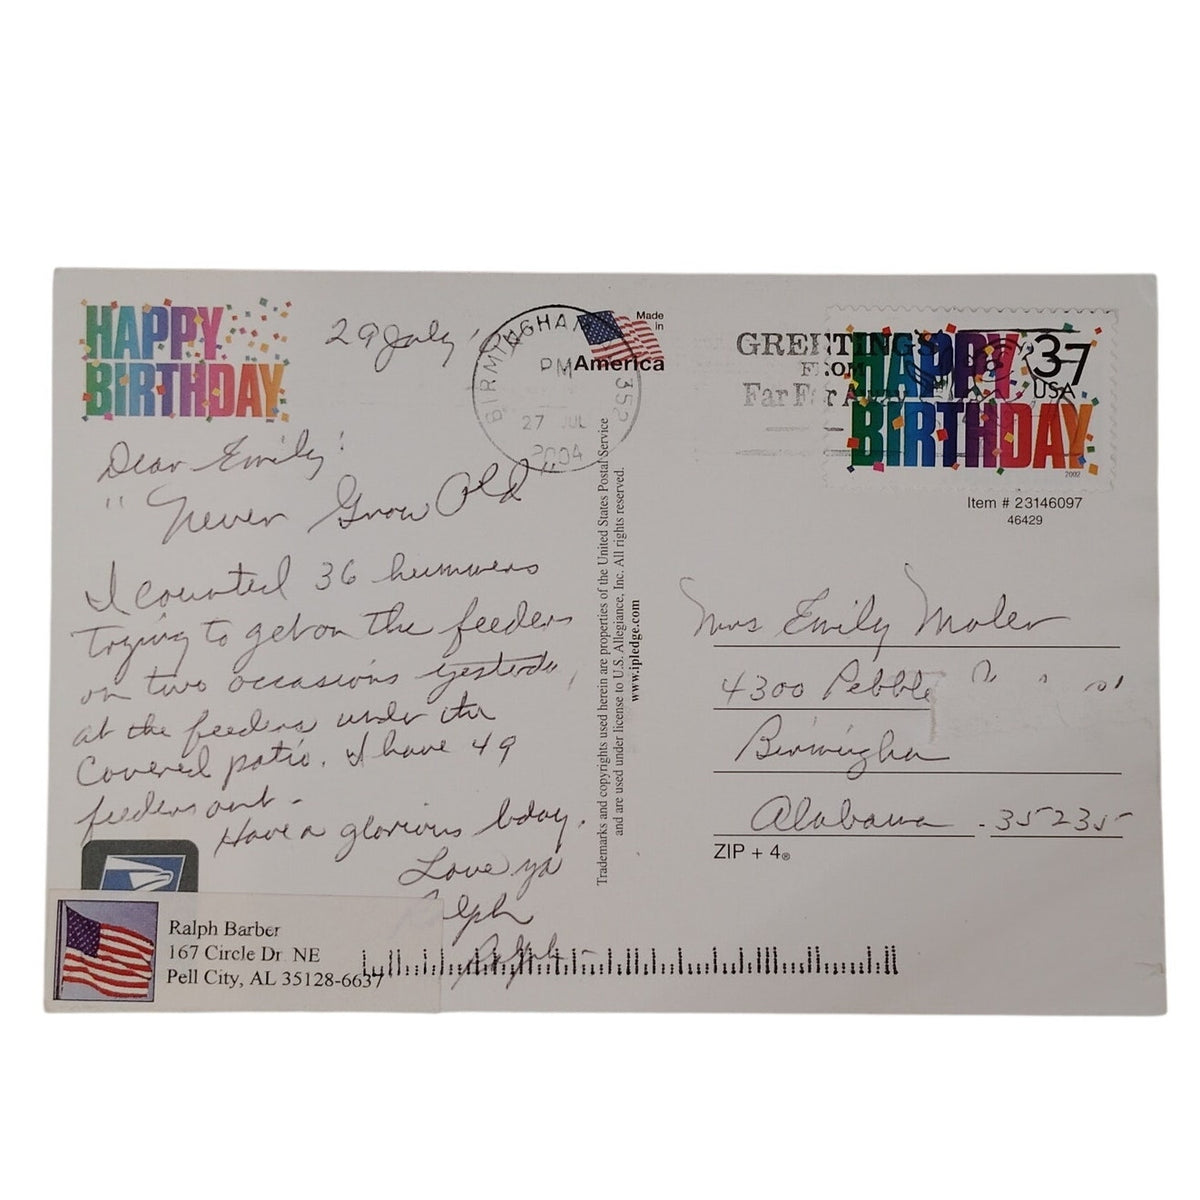 HAPPY
BIRTHDAY
29 July
BIRMINGHAM 352
PM
27 JUL
2004
Made
in
America
GREETINGS
FROM
Far Far Away
HAPPY
BIRTHDAY
37
USA
2002
Item # 23146097
46429
Dear Emily:
"Never Grow Old
I counted 36 hummers
trying to get on the feeders
on two occasions yesterday,
at the feeders under the
Covered patio. I have 49
feeders out -
Have a glorious bday.
Love ya
Ralph
Ralph
Ralph Barber
167 Circle Dr NE
Pell City, AL 35128-6637
Trademarks and copyrights used herein are properties of the United States Postal Service
and are used under license to U.S. Allegiance, Inc. All rights reserved.
www.ipledge.com
Mrs Emily Moler
4300 Pebble
Birmingham
Alabama - 35235
ZIP + 4®